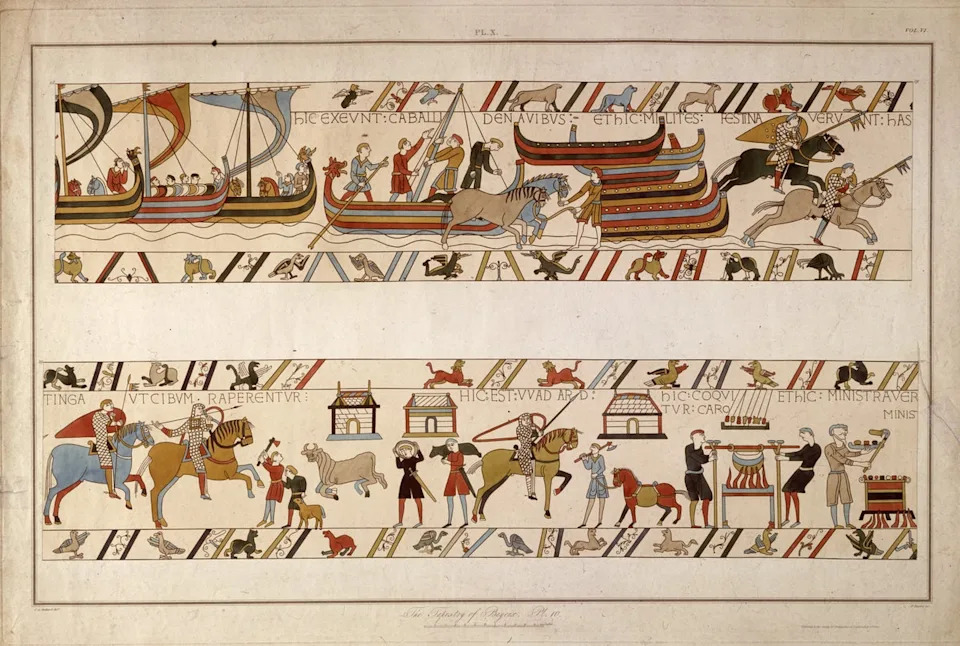 PL. X.
VOL. VI
hIC EXEVNT: CABALLI DENAVIBUS:- EThIC: MILITES: FESTINA VERVNT: hAS
TINGA VTCIBVM. RAPERENTVR: hIC: EST: VVADARD: hIC: COQVI EThIC: MINISTRAVER
TVR: CARO MINIS
The Tapestry of Bayeux. Pl. 10.